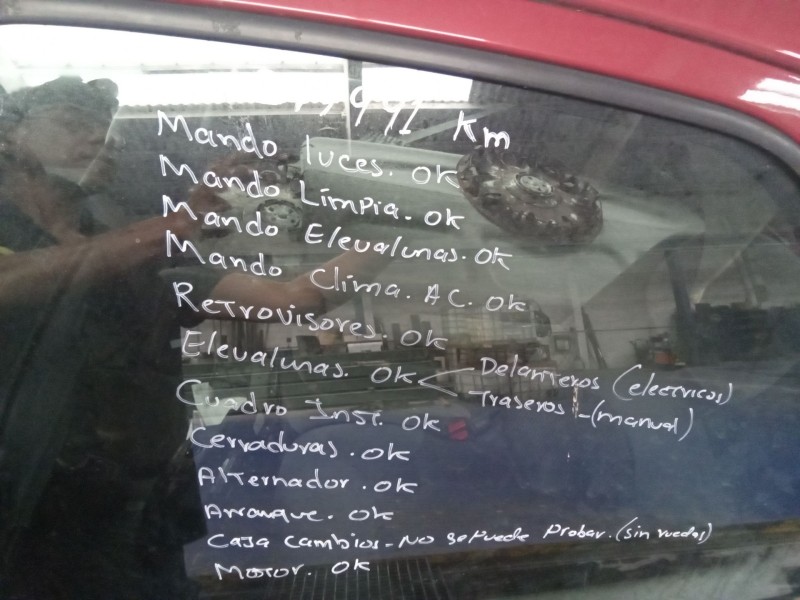 Km
Mando luces. OK
Mando Limpia. OK
Mando Elevalunas. OK
Mando Clima. AC. OK
Retrovisores. OK
Elevalunas. OK
Delanteros (electricos)
Traseros - (manual)
Cuadro Inst. OK
Cerraduras. OK
Alternador. OK
Arranque. OK
Caja cambios - No se Puede Probar. (sin ruedas)
Motor. OK